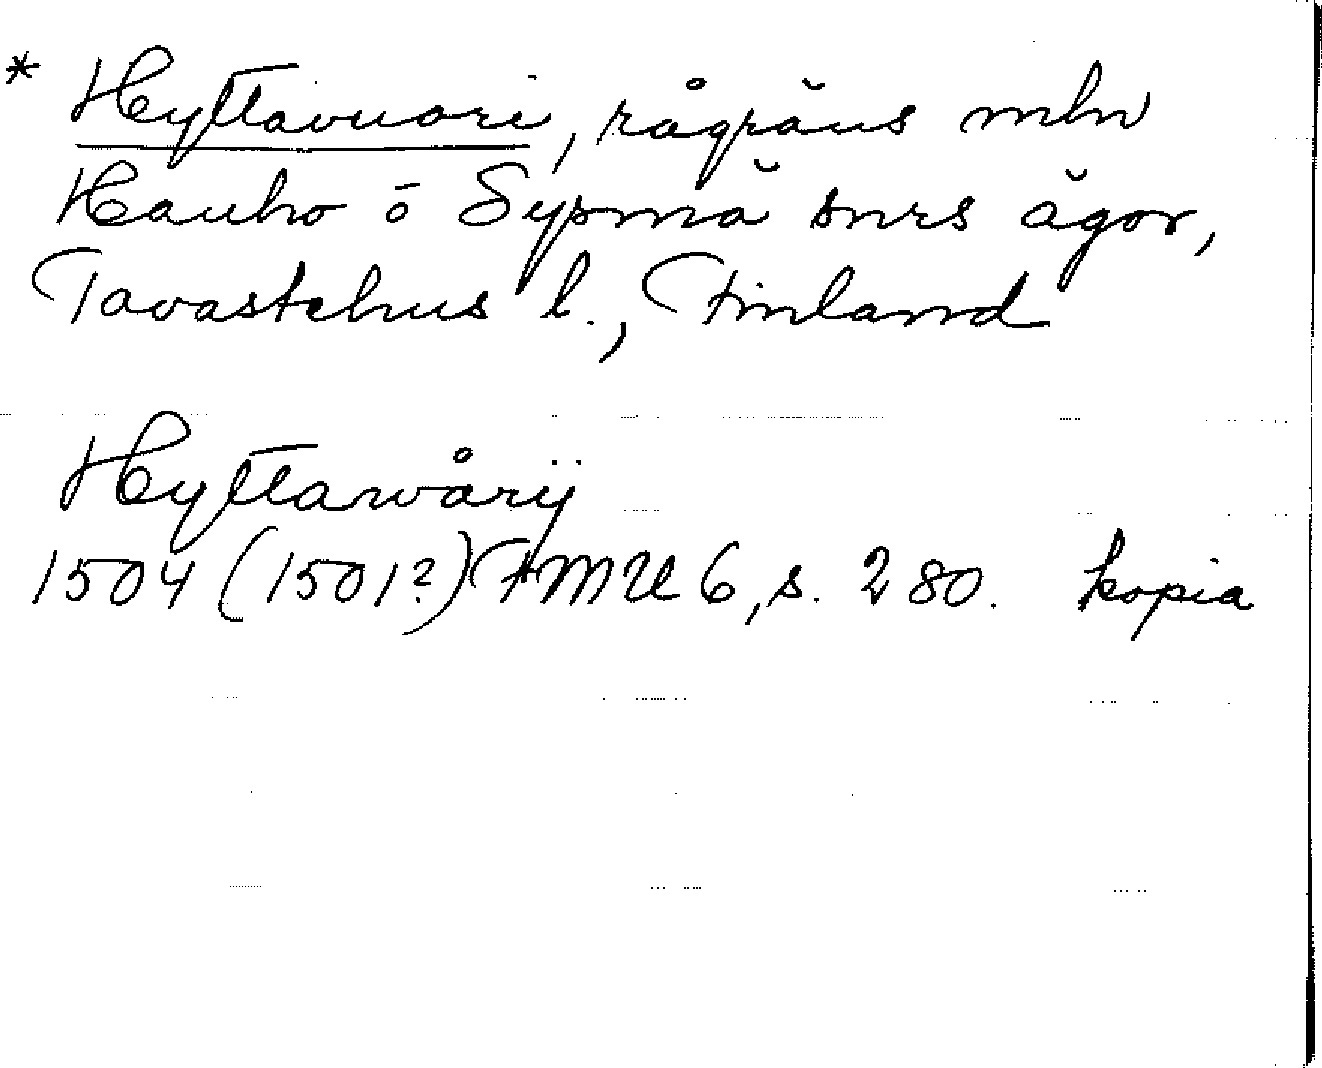 * Hyttävuori, rågräns mln
Hauho o Sysmä snrs ägor,
Tavastehus l., Finland
Hyttawårij
1504 (1501?) FMU 6, s. 280. kopia